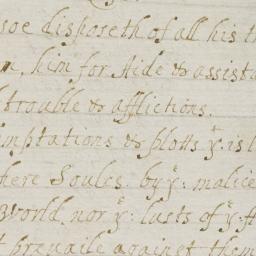 soe disposeth of all his
him for Aide & assista
trouble & afflictions.
mptations & plotts yt is
there Soules. by ye malice
World, nor ye lusts of ye
prevaile against them